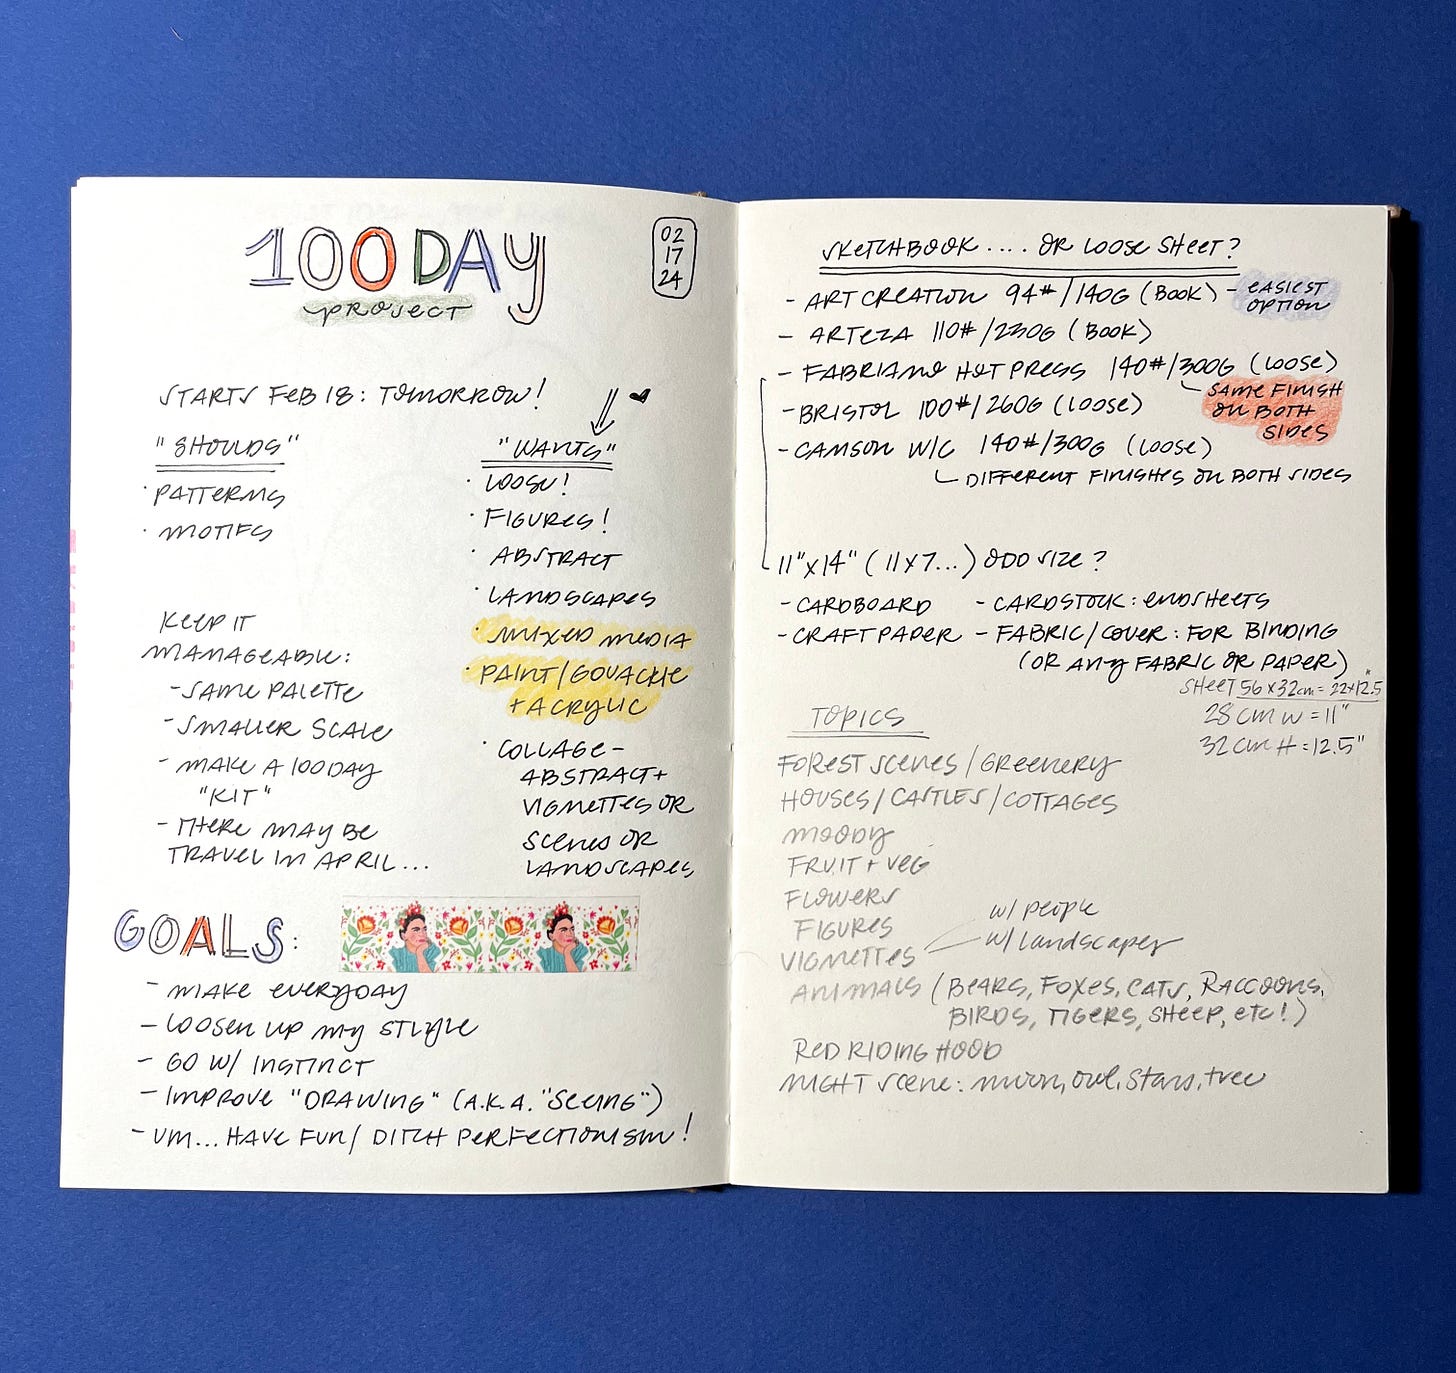 100 DAY
project
02
17
24
STARTS FEB 18: TOMORROW!
"SHOULDS"
· PATTERNS
· MOTIFS
KEEP IT
MANAGEABLE:
- SAME PALETTE
- SMALLER SCALE
- MAKE A 100 DAY
"KIT"
- THERE MAY BE
TRAVEL IN APRIL...
"WANTS"
· LOOSE!
· FIGURES!
· ABSTRACT
· LANDSCAPES
· MIXED MEDIA
· PAINT/GOUACHE
+ ACRYLIC
· COLLAGE -
ABSTRACT +
VIGNETTES OR
SCENES OR
LANDSCAPES
GOALS:
- MAKE EVERYDAY
- LOOSEN UP MY STYLE
- GO W/ INSTINCT
- IMPROVE "DRAWING" (A.K.A. "SEEING")
- UM... HAVE FUN/ DITCH PERFECTIONISM!
SKETCHBOOK .... OR LOOSE SHEET?
- ART CREATION 94#/140G (BOOK) - EASIEST
OPTION
- ARTEZA 110#/230G (BOOK)
- FABRIANO HOT PRESS 140#/300G (LOOSE)
SAME FINISH
ON BOTH
SIDES
- BRISTOL 100#/260G (LOOSE)
- CANSON W/C 140#/300G (LOOSE)
DIFFERENT FINISHES ON BOTH SIDES
11"x14" (11x7...) ODD SIZE?
- CARDBOARD - CARDSTOCK: ENDSHEETS
- CRAFT PAPER - FABRIC/COVER: FOR BINDING
(OR ANY FABRIC OR PAPER)
SHEET 56 x 32cm = 22x12.5"
28 cm W = 11"
32 cm H = 12.5"
TOPICS
FOREST SCENES / GREENERY
HOUSES / CASTLES / COTTAGES
MOODY
FRUIT + VEG
FLOWERS
FIGURES
VIGNETTES
w/ people
w/ landscapes
ANIMALS (BEARS, FOXES, CATS, RACCOONS,
BIRDS, TIGERS, SHEEP, ETC!)
RED RIDING HOOD
NIGHT SCENE: moon, owl, stars, tree